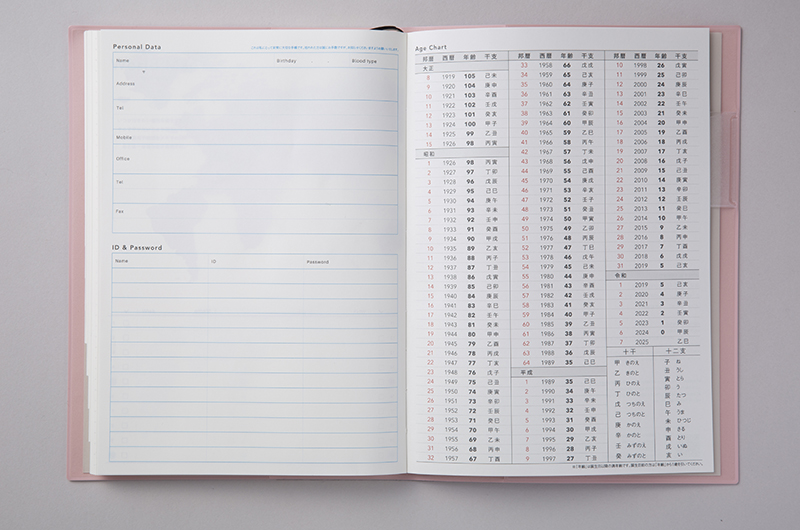 Personal Data
Name Birthday Blood type
Address
Tel
Mobile
Office
Tel
Fax
ID & Password
Name ID Password
Age Chart
邦暦 西暦 年齢 干支
大正
8 1919 105 己未
9 1920 104 庚申
10 1921 103 辛酉
11 1922 102 壬戌
12 1923 101 癸亥
13 1924 100 甲子
14 1925 99 乙丑
15 1926 98 丙寅
昭和
1 1926 98 丙寅
2 1927 97 丁卯
3 1928 96 戊辰
4 1929 95 己巳
5 1930 94 庚午
6 1931 93 辛未
7 1932 92 壬申
8 1933 91 癸酉
9 1934 90 甲戌
10 1935 89 乙亥
11 1936 88 丙子
12 1937 87 丁丑
13 1938 86 戊寅
14 1939 85 己卯
15 1940 84 庚辰
16 1941 83 辛巳
17 1942 82 壬午
18 1943 81 癸未
19 1944 80 甲申
20 1945 79 乙酉
21 1946 78 丙戌
22 1947 77 丁亥
23 1948 76 戊子
24 1949 75 己丑
25 1950 74 庚寅
26 1951 73 辛卯
27 1952 72 壬辰
28 1953 71 癸巳
29 1954 70 甲午
30 1955 69 乙未
31 1956 68 丙申
32 1957 67 丁酉
邦暦 西暦 年齢 干支
33 1958 66 戊戌
34 1959 65 己亥
35 1960 64 庚子
36 1961 63 辛丑
37 1962 62 壬寅
38 1963 61 癸卯
39 1964 60 甲辰
40 1965 59 乙巳
41 1966 58 丙午
42 1967 57 丁未
43 1968 56 戊申
44 1969 55 己酉
45 1970 54 庚戌
46 1971 53 辛亥
47 1972 52 壬子
48 1973 51 癸丑
49 1974 50 甲寅
50 1975 49 乙卯
51 1976 48 丙辰
52 1977 47 丁巳
53 1978 46 戊午
54 1979 45 己未
55 1980 44 庚申
56 1981 43 辛酉
57 1982 42 壬戌
58 1983 41 癸亥
59 1984 40 甲子
60 1985 39 乙丑
61 1986 38 丙寅
62 1987 37 丁卯
63 1988 36 戊辰
64 1989 35 己巳
平成
1 1989 35 己巳
2 1990 34 庚午
3 1991 33 辛未
4 1992 32 壬申
5 1993 31 癸酉
6 1994 30 甲戌
7 1995 29 乙亥
8 1996 28 丙子
9 1997 27 丁丑
邦暦 西暦 年齢 干支
10 1998 26 戊寅
11 1999 25 己卯
12 2000 24 庚辰
13 2001 23 辛巳
14 2002 22 壬午
15 2003 21 癸未
16 2004 20 甲申
17 2005 19 乙酉
18 2006 18 丙戌
19 2007 17 丁亥
20 2008 16 戊子
21 2009 15 己丑
22 2010 14 庚寅
23 2011 13 辛卯
24 2012 12 壬辰
25 2013 11 癸巳
26 2014 10 甲午
27 2015 9 乙未
28 2016 8 丙申
29 2017 7 丁酉
30 2018 6 戊戌
31 2019 5 己亥
令和
1 2019 5 己亥
2 2020 4 庚子
3 2021 3 辛丑
4 2022 2 壬寅
5 2023 1 癸卯
6 2024 0 甲辰
7 2025 乙巳
十干
甲 きのえ
乙 きのと
丙 ひのえ
丁 ひのと
戊 つちのえ
己 つちのと
庚 かのえ
辛 かのと
壬 みずのえ
癸 みずのと
十二支
子 ね
丑 うし
寅 とら
卯 う
辰 たつ
巳 み
午 うま
未 ひつじ
申 さる
酉 とり
戌 いぬ
亥 い
※「年齢」は誕生日以降の満年齢です。誕生日前の方は「年齢」から1歳を引いてください。